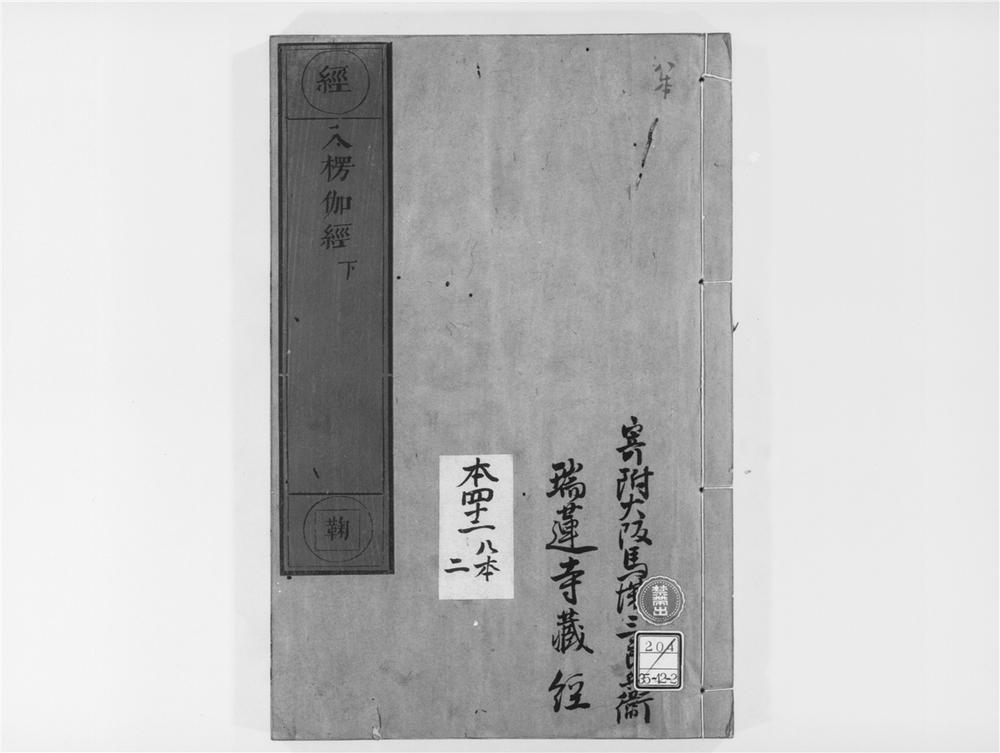 八本
寄附大阪馬場三郎兵衛
禁帶出
204
35-42-2
瑞蓮寺藏經
本四十二
八本
二
經
入楞伽經
下
鞠